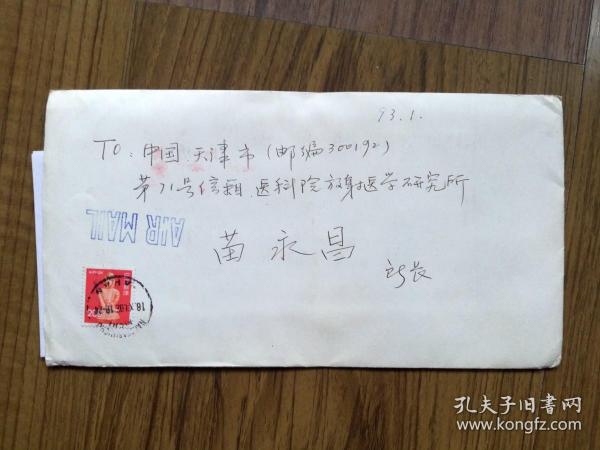 93.1.
TO: 中国 天津市 (邮编300192)
第71号信箱 医科院放射医学研究所
AIR MAIL
苗永昌
所长
孔夫子旧书网
www.kongfz.com